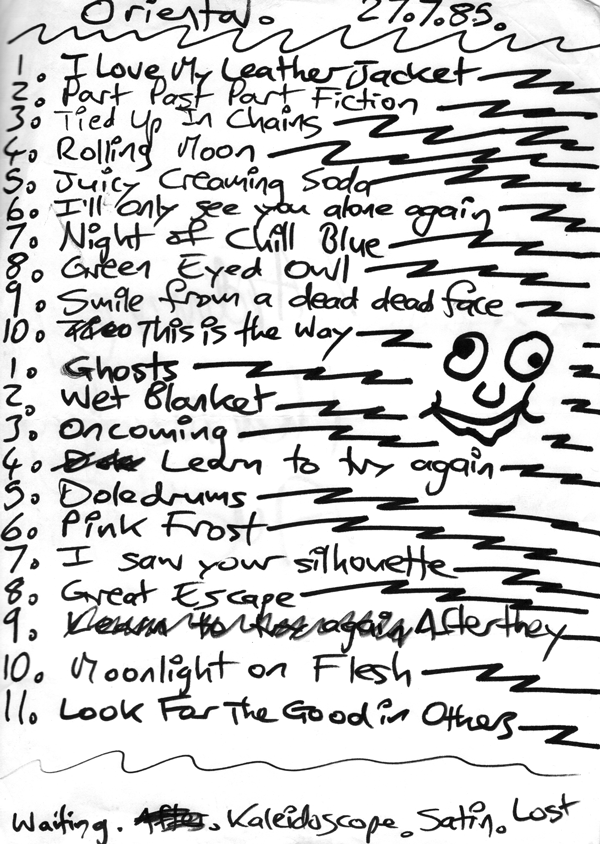 Oriental. 27.7.85.
1. I Love My Leather Jacket
2. Part Past Part Fiction
3. Tied Up In Chains
4. Rolling Moon
5. Juicy Creaming Soda
6. I'll only see you alone again
7. Night of Chill Blue
8. Green Eyed Owl
9. Smile from a dead dead face
10. This is the Way
1. Ghosts
2. Wet Blanket
3. Oncoming
4. Learn to try again
5. Doledrums
6. Pink Frost
7. I saw your silhouette
8. Great Escape
9. Learn to try again After they
10. Moonlight on Flesh
11. Look For The Good in Others
Waiting. After. Kaleidoscope. Satin. Lost